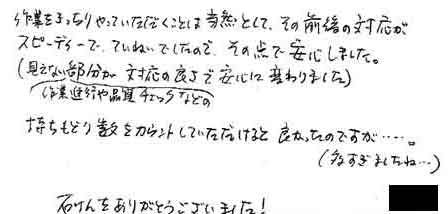 作業をきっちりやっていただくことは当然として、その前後の対応が
スピーディーで、ていねいでしたので、その点で安心しました。
(見えない部分が対応の良さで安心に変わりました)
(作業進行や品質チェックなどの
持ちもどり数をカウントしていただけると良かったのですが……。
(多すぎましたね…)
石けんをありがとうございました!